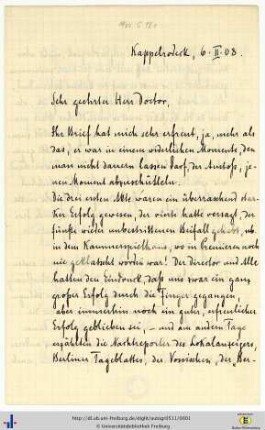 Kappelrodeck, 6. II. 08.
Sehr geehrter Herr Doctor,
Ihr Brief hat mich sehr erfreut, ja, mehr als
das, er war in einem widerlichen Momente, den
man nicht dauern lassen darf, der Anstoß, je-
nen Moment abzuschütteln.
Die drei ersten Akte waren ein überraschend star-
ker Erfolg gewesen, der vierte hatte versagt, der
fünfte wieder unbestrittenen Beifall gehabt, u.
in dem Kammerspielhaus, wo in Premieren noch
nie geklatscht worden war! Der Director und Alle
hatten den Eindruck, daß mir zwar ein ganz
großer Erfolg durch die Finger gegangen,
aber immerhin noch ein guter, erfreulicher
Erfolg geblieben sei, – und am andern Tage
erzählten die Nachtreporter des Lokalanzeigers,
Berliner Tageblattes, der Vossischen, der "Ber-
http://dl.ub.uni-freiburg.de/diglit/autogr0511/0001
© Universitätsbibliothek Freiburg